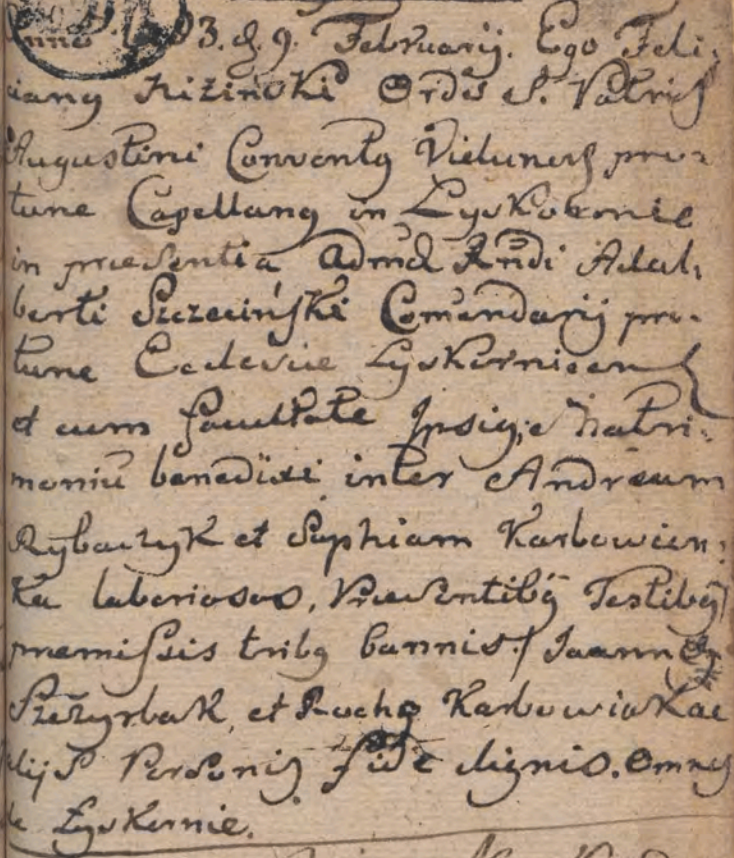 Anno 3. d. 9. Februarij. Ego Feli:
cianq Kiziński Ordis S. Patris
Augustini Conventq Vielunens pro:
tunc Capellanq in Lyskornie
in praesentia Admd Rndi Adal:
berti Szczeciński Comendarij pro:
tunc Ecclesiae Lyskornicen
et cum facultate Ipsiq; Matri:
moniũ benedixi inter Andream
Rybaczyk et Sophiam Karbowien:
ka laboriosos, Praesentibq Testibq
premissis tribq bannis / Joanne
Szczyrbak, et Rocho Karbowiak ac
alijs Personis fide dignis. omnes
de Lyskornie.